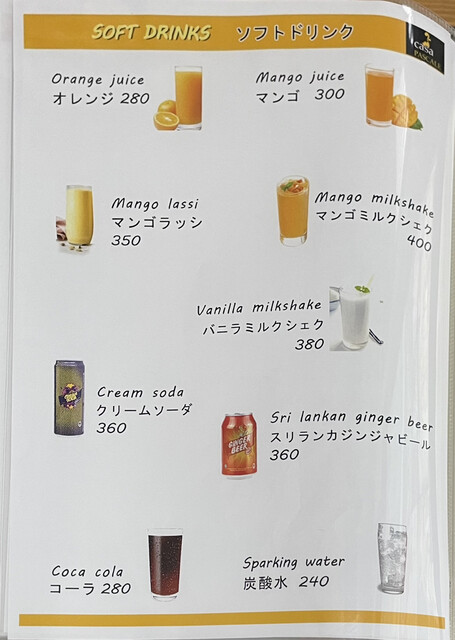 SOFT DRINKS ソフトドリンク
casa
PASCALE
Orange juice
オレンジ 280
Mango juice
マンゴ 300
Mango lassi
マンゴラッシ
350
Mango milkshake
マンゴミルクシェク
400
Vanilla milkshake
バニラミルクシェク
380
Cream soda
クリームソーダ
360
Sri lankan ginger beer
スリランカジンジャビール
360
GINGER
BEER
Coca cola
コーラ 280
Sparking water
炭酸水 240